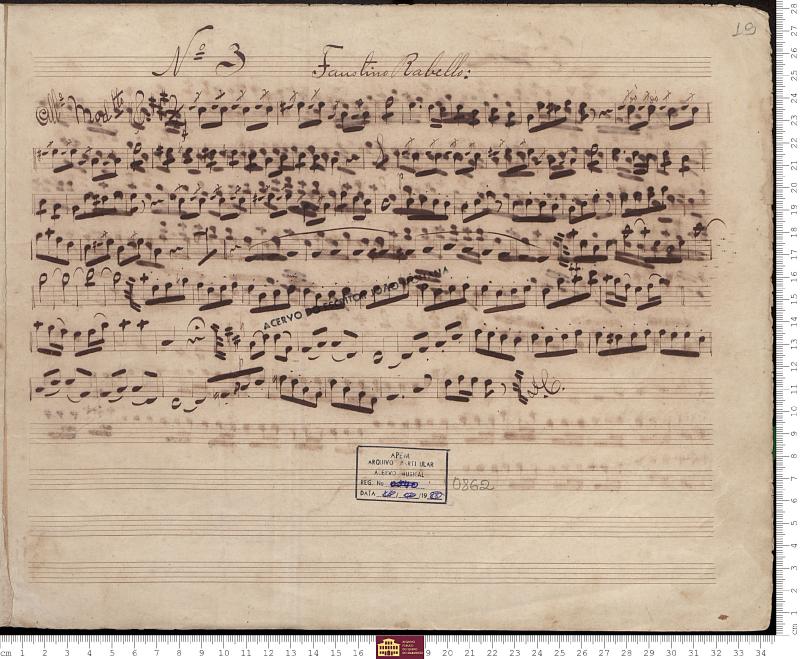 19
Nº 3 Faustino Rabello:
All.º Mod.to
ACERVO DO ESCRITOR JOÃO
D.C.
APEM
ARQUIVO PARTICULAR
ACERVO MUSICAL
REG. No
0862
DATA / /19
cm 1 2 3 4 5 6 7 8 9 10 11 12 13 14 15 16 19 20 21 22 23 24 25 26 27 28 29 30 31 32 33 34
cm 1 2 3 4 5 6 7 8 9 10 11 12 13 14 15 16 17 18 19 20 21 22 23 24 25 26 27 28